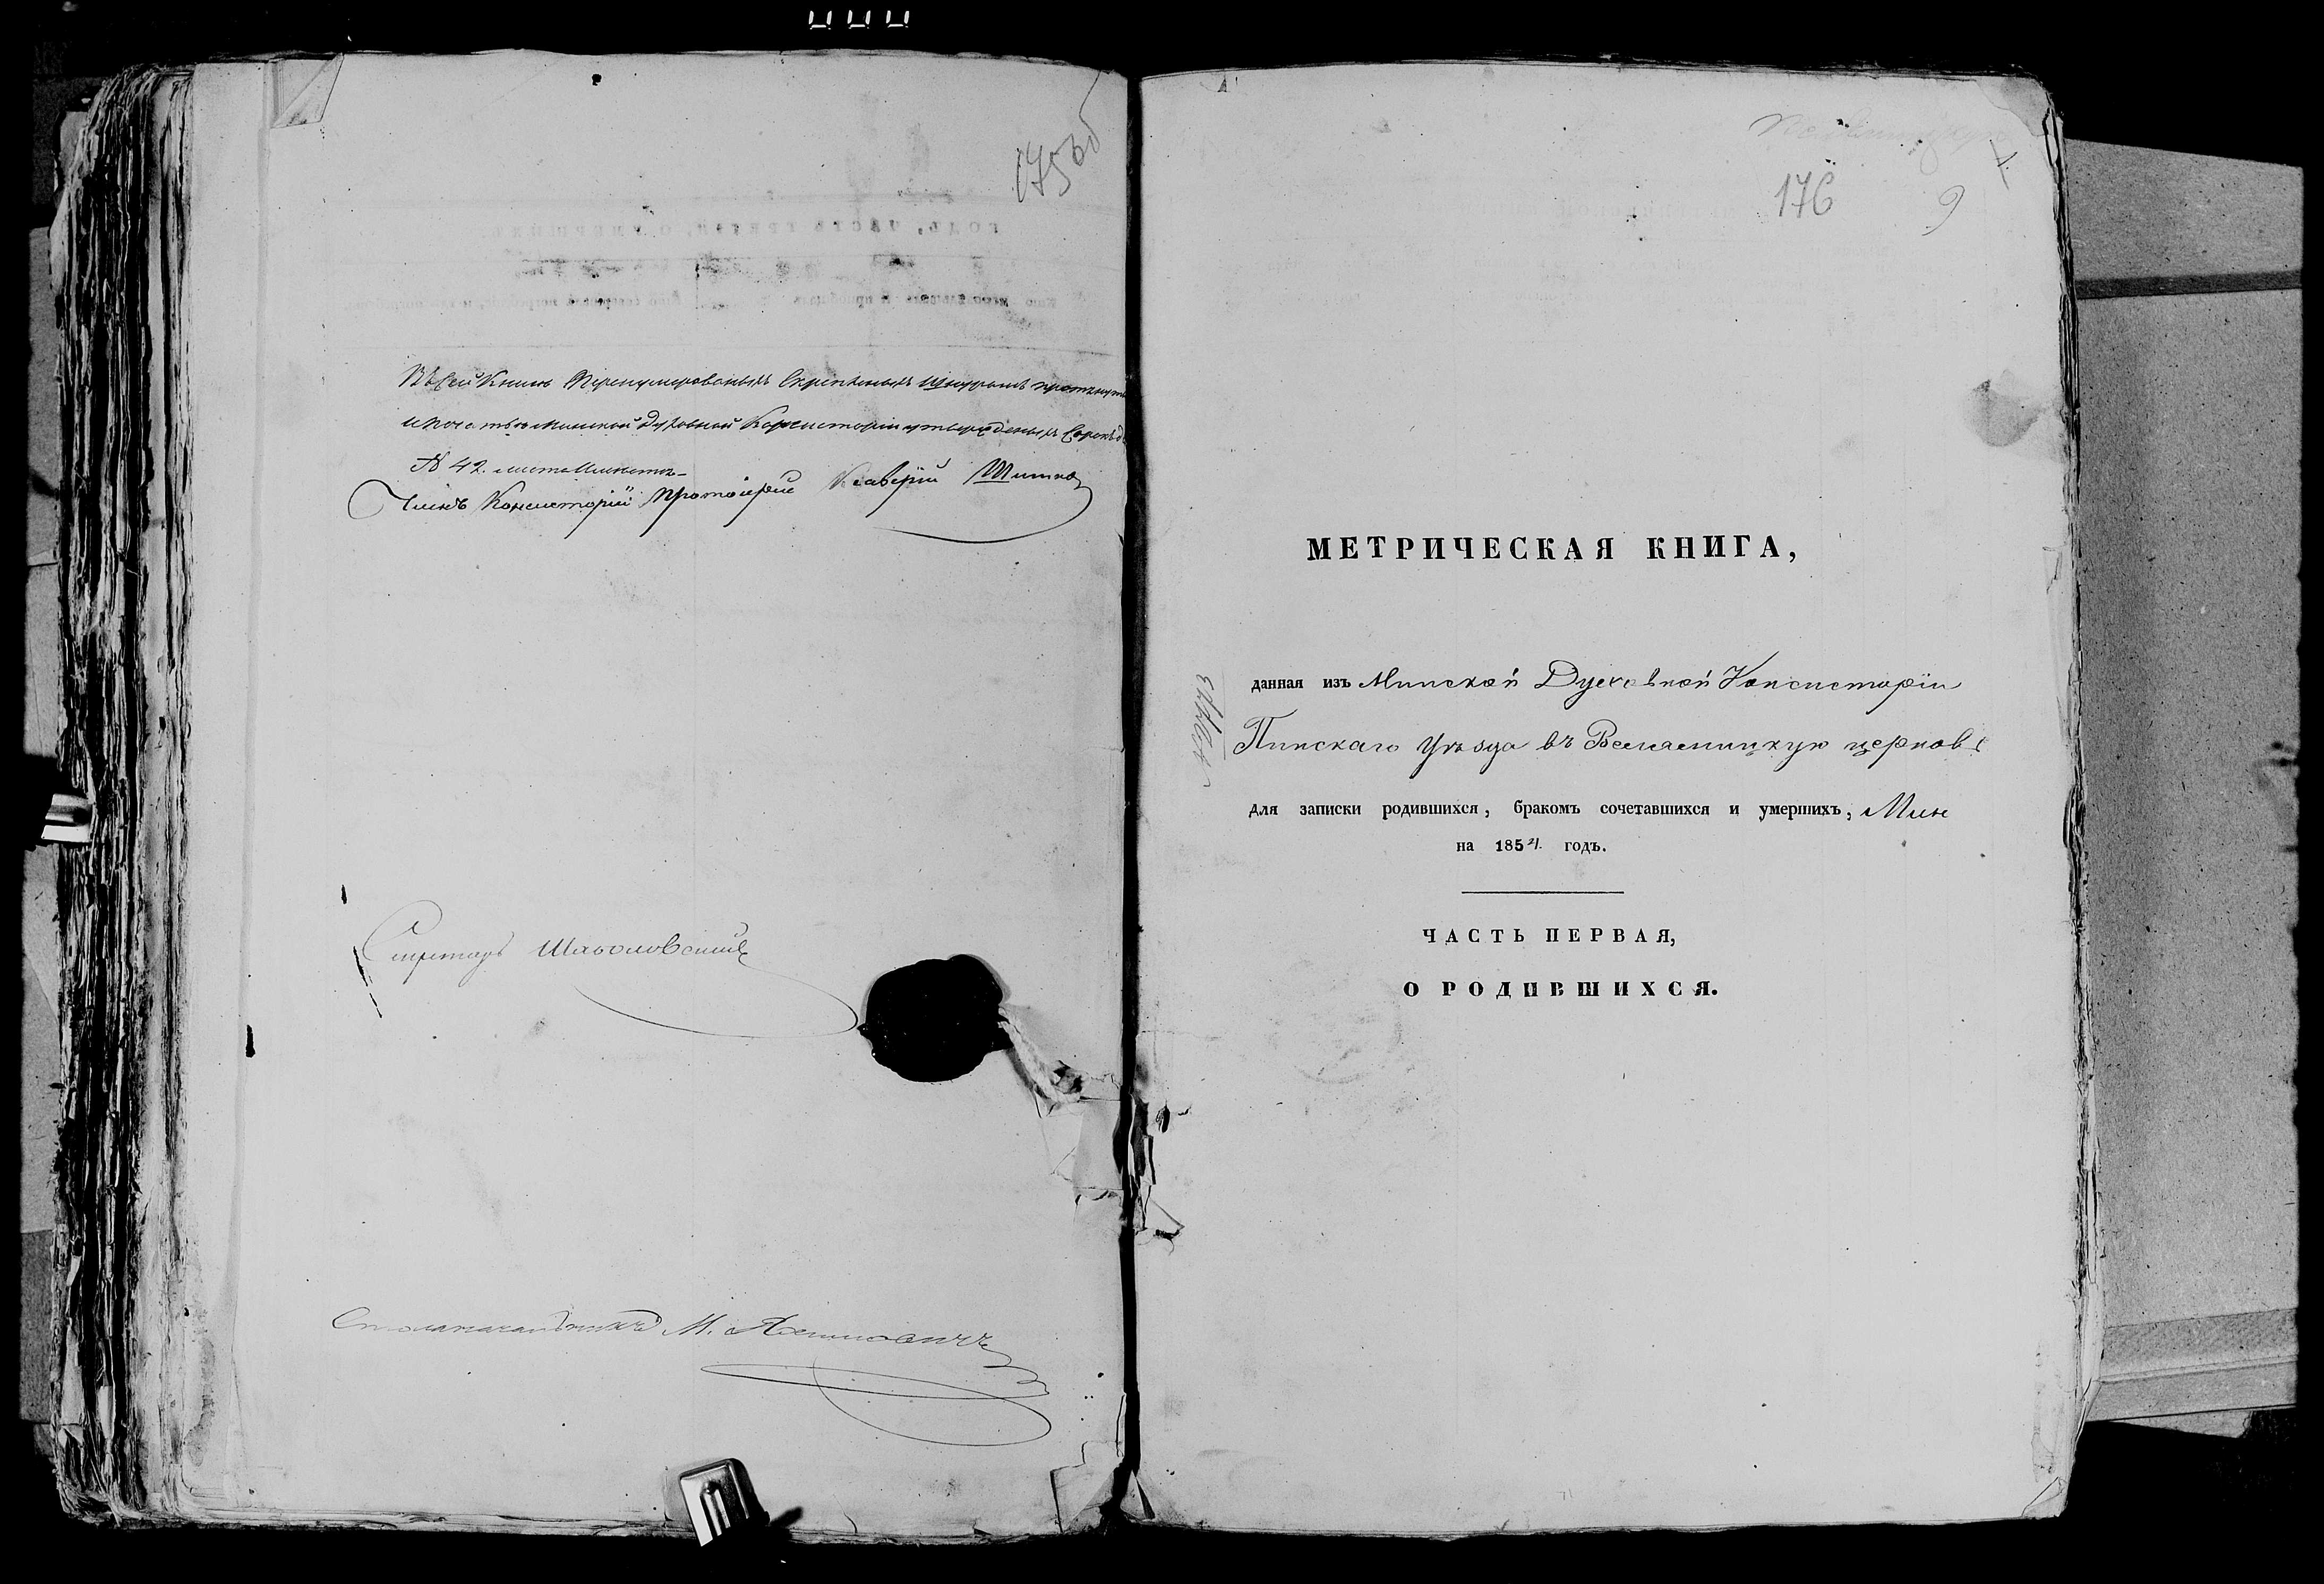 175об
Въ сей Книгѣ Перенумерованныхъ Скрепленыхъ Шнуромъ протянут
и Печатью Минской Духовной Консисторіи утвержденыхъ Сорокъ
№ 42. листа Имѣетъ
Членъ Консисторіи Протоіерей Ксаверій
Секретарь
Столоначальникъ М.
176
9
МЕТРИЧЕСКАЯ КНИГА,
данная изъ Минской Духовной Консисторіи
Пинскаго Уѣзда въ Велесницкую церковь
для записки родившихся, бракомъ сочетавшихся и умершихъ,
на 1854. годъ.
ЧАСТЬ ПЕРВАЯ,
О РОДИВШИХСЯ.